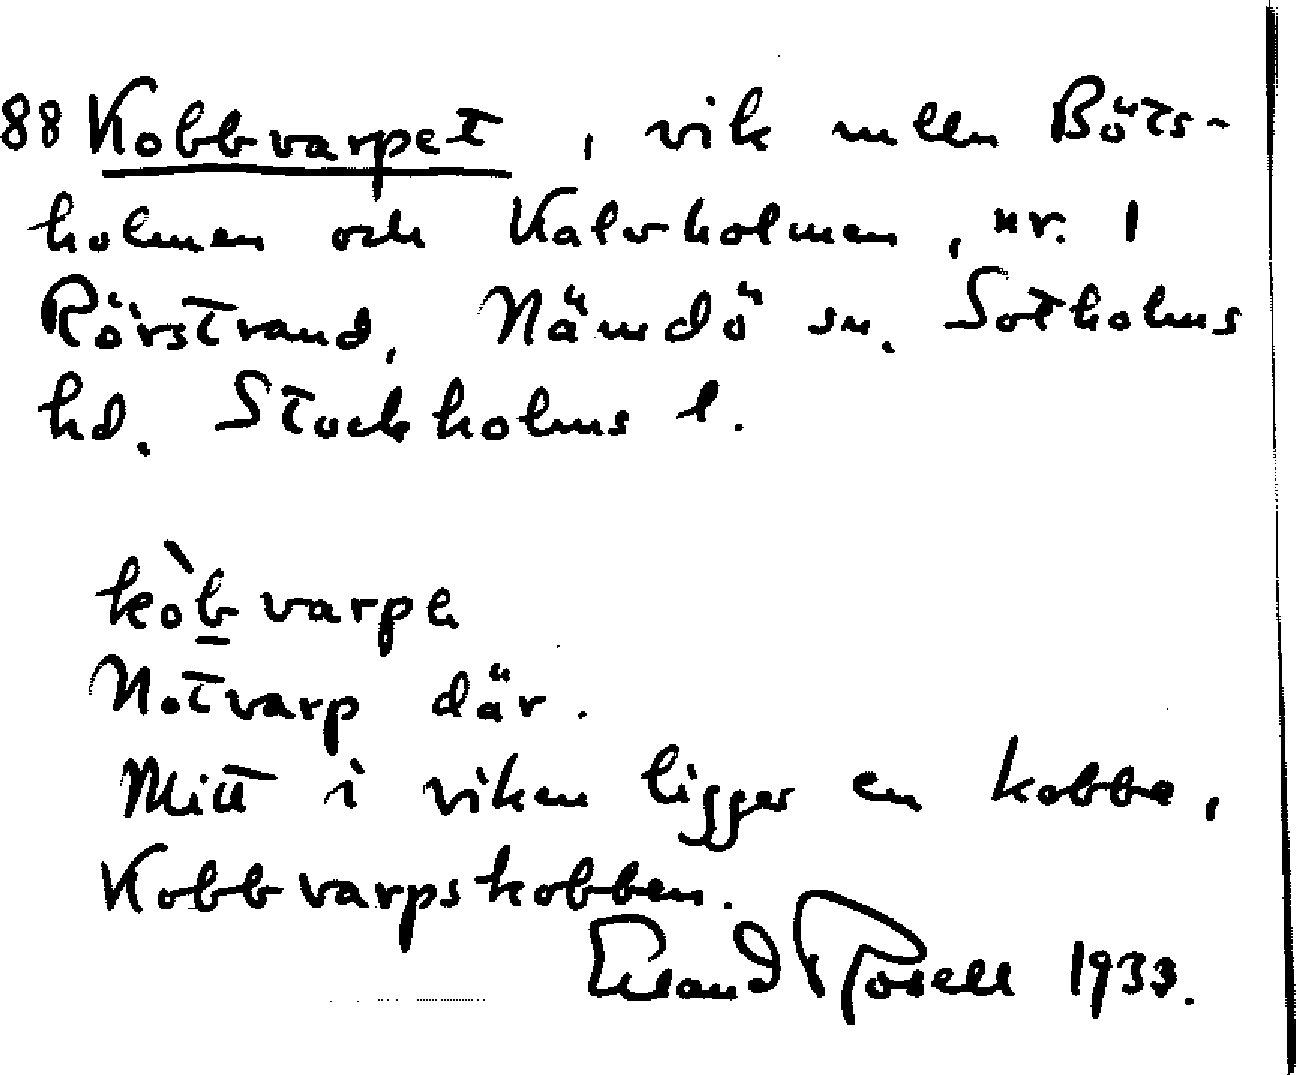 88 Kobbvarpet, vik mellan Böts-
holmen och Kalvholmen, nr. 1
Rörstrand, Nämdö sn. Sotholms
hd. Stockholms l.
kòb̲varpe
Notvarp där.
Mitt i viken ligger en kobbe,
Kobbvarpskobben.
Erland Rosell 1933.